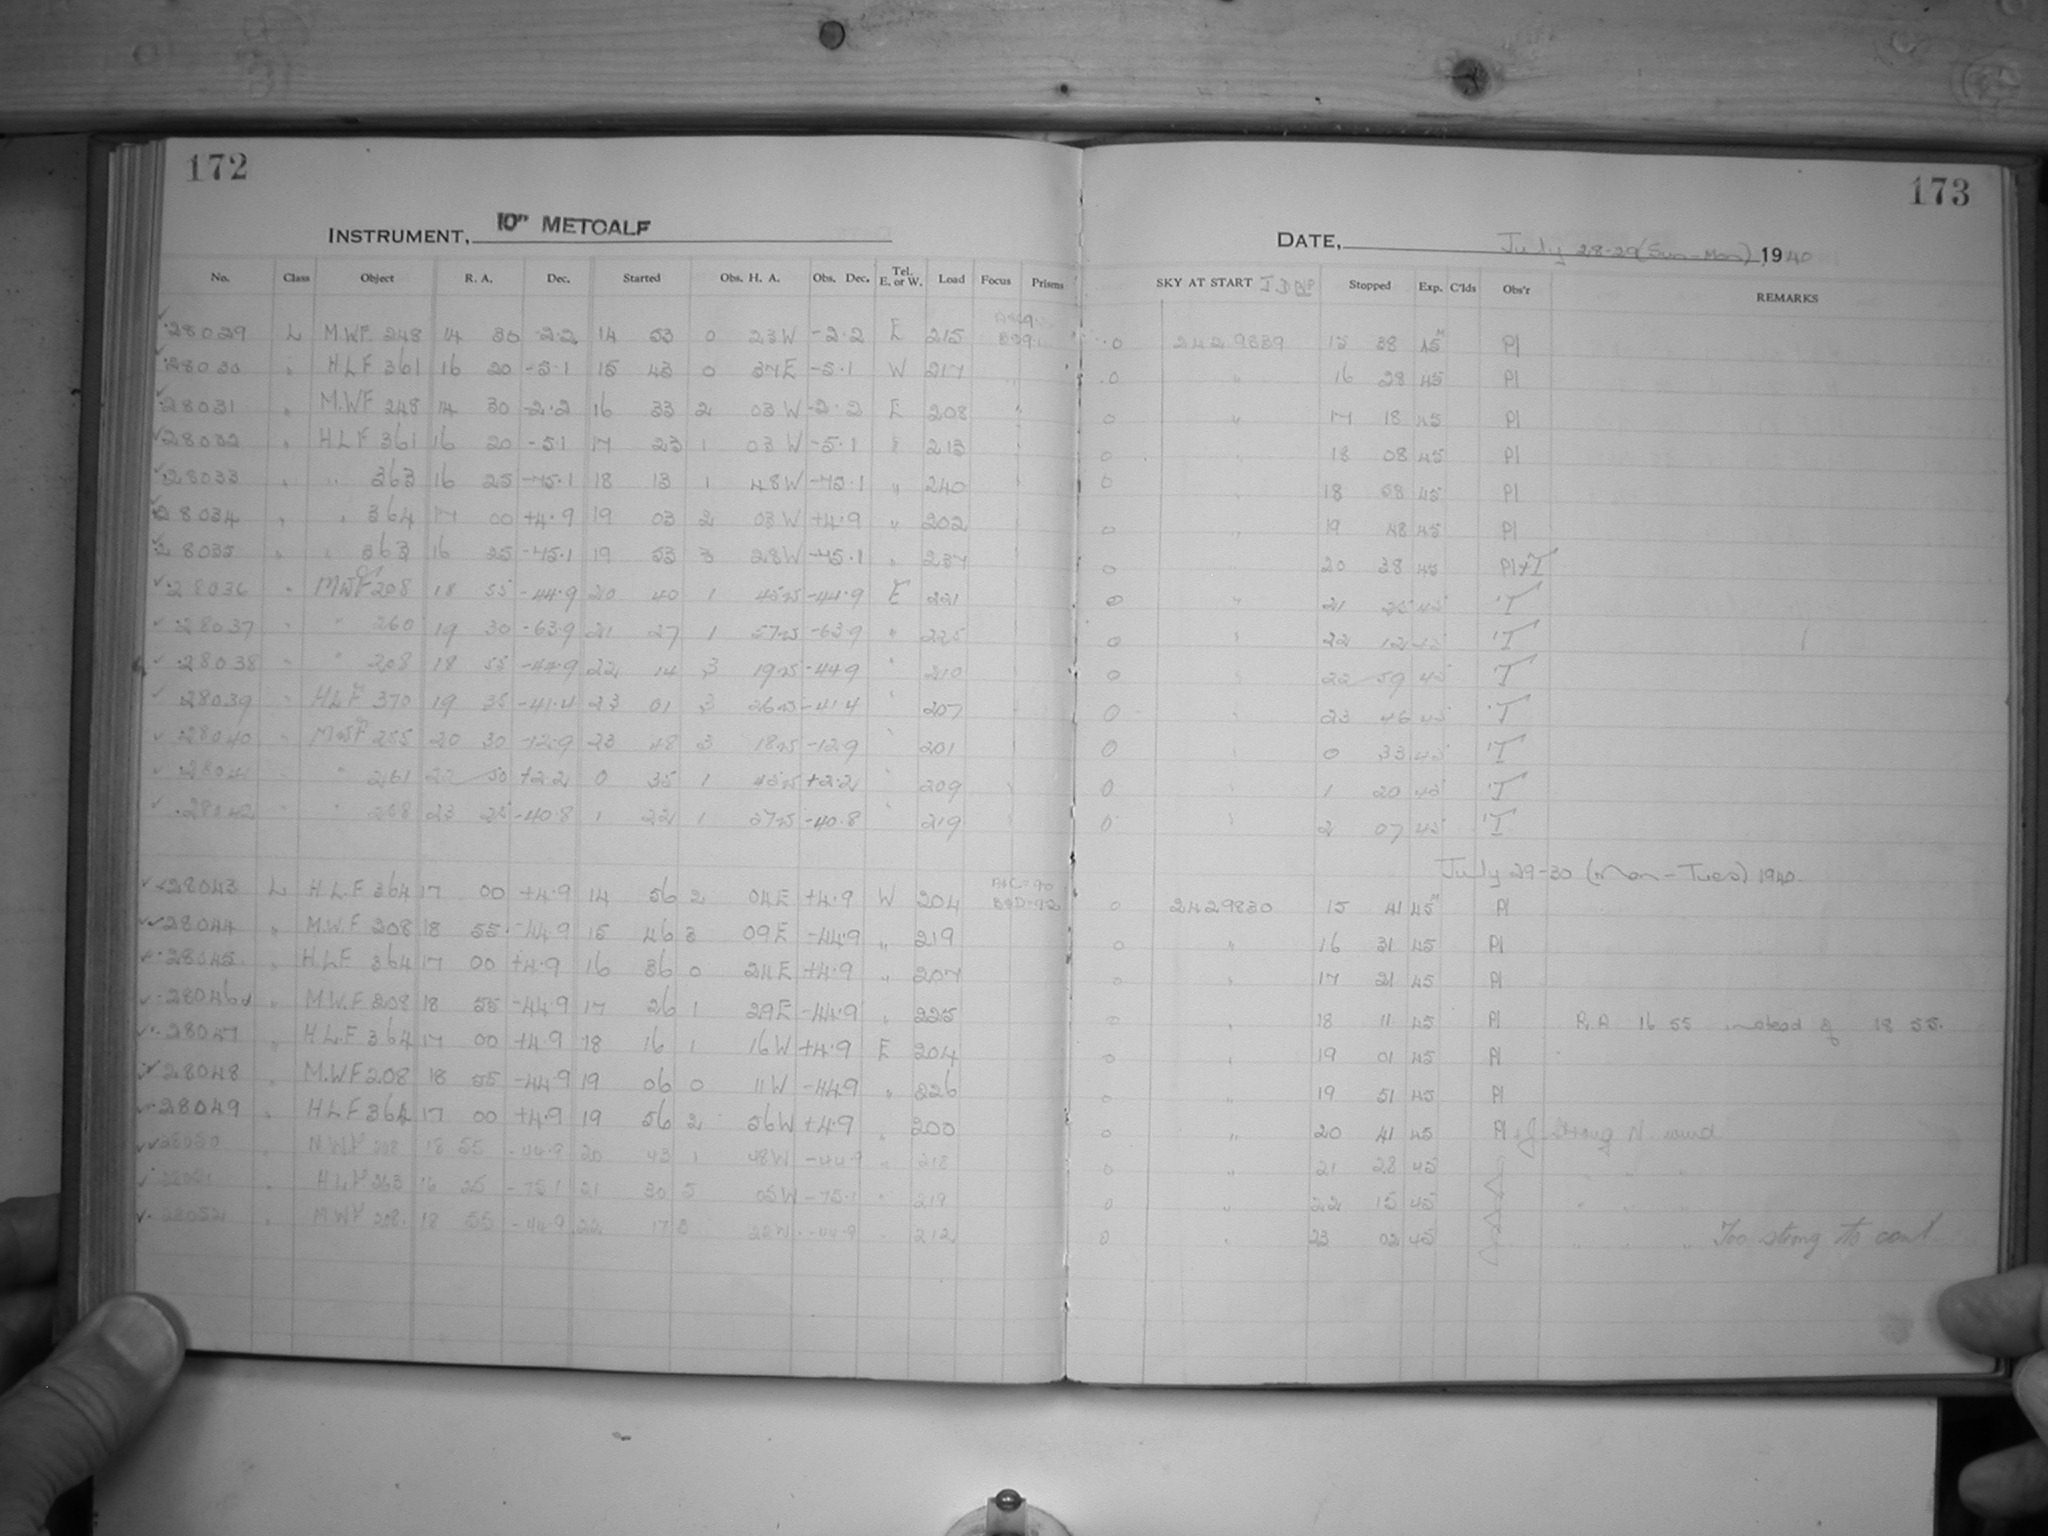 172
INSTRUMENT, 10" METCALF
No. Class Object R. A. Dec. Started Obs. H. A. Obs. Dec. Tel. E. or W. Load Focus Prisms
28029 L M.WF. 248 14 30 -2.2 14 53 0 23W -2.2 E 215
28030 " HLF 361 16 20 -5.1 15 43 0 37E -5.1 W 217
28031 " M.WF 248 14 30 -2.2 16 33 2 03W -2.2 E 208
28032 " HLF 361 16 20 -5.1 17 23 1 03W -5.1 " 213
28033 " " 363 16 25 -75.1 18 13 1 48W -75.1 " 240
28034 " " 364 17 00 +4.9 19 03 2 03W +4.9 " 202
28035 " " 363 16 25 -75.1 19 53 3 28W -75.1 " 237
28036 " MWF 208 18 55 -44.9 20 40 1 45W -44.9 E 221
28037 " " 260 19 30 -63.9 21 27 1 57W -63.9 " 225
28038 " " 208 18 55 -44.9 22 14 3 19W -44.9 " 210
28039 " HLF 370 19 35 -41.4 23 01 3 26W -41.4 " 207
28040 " MWF 255 20 30 -12.9 23 48 3 18W -12.9 " 201
28041 " " 261 22 50 +2.2 0 35 1 45W +2.2 " 209
28042 " " 268 23 25 -40.8 1 22 1 57W -40.8 " 219
28043 L H.L.F 364 17 00 +4.9 14 56 2 04E +4.9 W 204 A&C=90 B&D=92
28044 " M.W.F 208 18 55 -44.9 15 46 3 09E -44.9 " 219
28045 " H.L.F. 364 17 00 +4.9 16 36 0 24E +4.9 " 207
28046 " M.W.F 208 18 55 -44.9 17 26 1 29E -44.9 " 225
28047 " H.L.F 364 17 00 +4.9 18 16 1 16W +4.9 E 204
28048 " M.WF 208 18 55 -44.9 19 06 0 11W -44.9 " 226
28049 " HLF 364 17 00 +4.9 19 56 2 56W +4.9 " 200
28050 " MWF 208 18 55 -44.9 20 43 1 48W -44.9 " 218
28051 " HLF 363 16 25 -75.1 21 30 5 05W -75.1 " 219
28052 " MWF 208 18 55 -44.9 22 17 3 22W -44.9 " 212
173
DATE, July 28-29 (Sun-Mon), 1940
SKY AT START Stopped Exp. C'lds Obs'r REMARKS
0 15 38 45M Pl
0 " 16 28 45 Pl
0 " 17 18 45 Pl
0 " 18 08 45 Pl
0 " 18 58 45 Pl
0 " 19 48 45 Pl
0 " 20 38 45 Pl+T
0 " 21 25 45 T
0 " 22 12 45 T
0 " 22 59 45 T
0 " 23 46 45 T
0 " 0 33 45 T
0 " 1 20 45 T
0 " 2 07 45 T
July 29-30 (Mon-Tues) 1940.
0 2429830 15 41 45M Pl
0 " 16 31 45 Pl
0 " 17 21 45 Pl
0 " 18 11 45 Pl R.A 16 55 instead of 18 55.
0 " 19 01 45 Pl
0 " 19 51 45 Pl
0 " 20 41 45 Pl+J Strong N wind
0 " 21 28 45 J " " "
0 " 22 15 45 J " " "
0 " 23 02 45 J " " " Too strong to cont